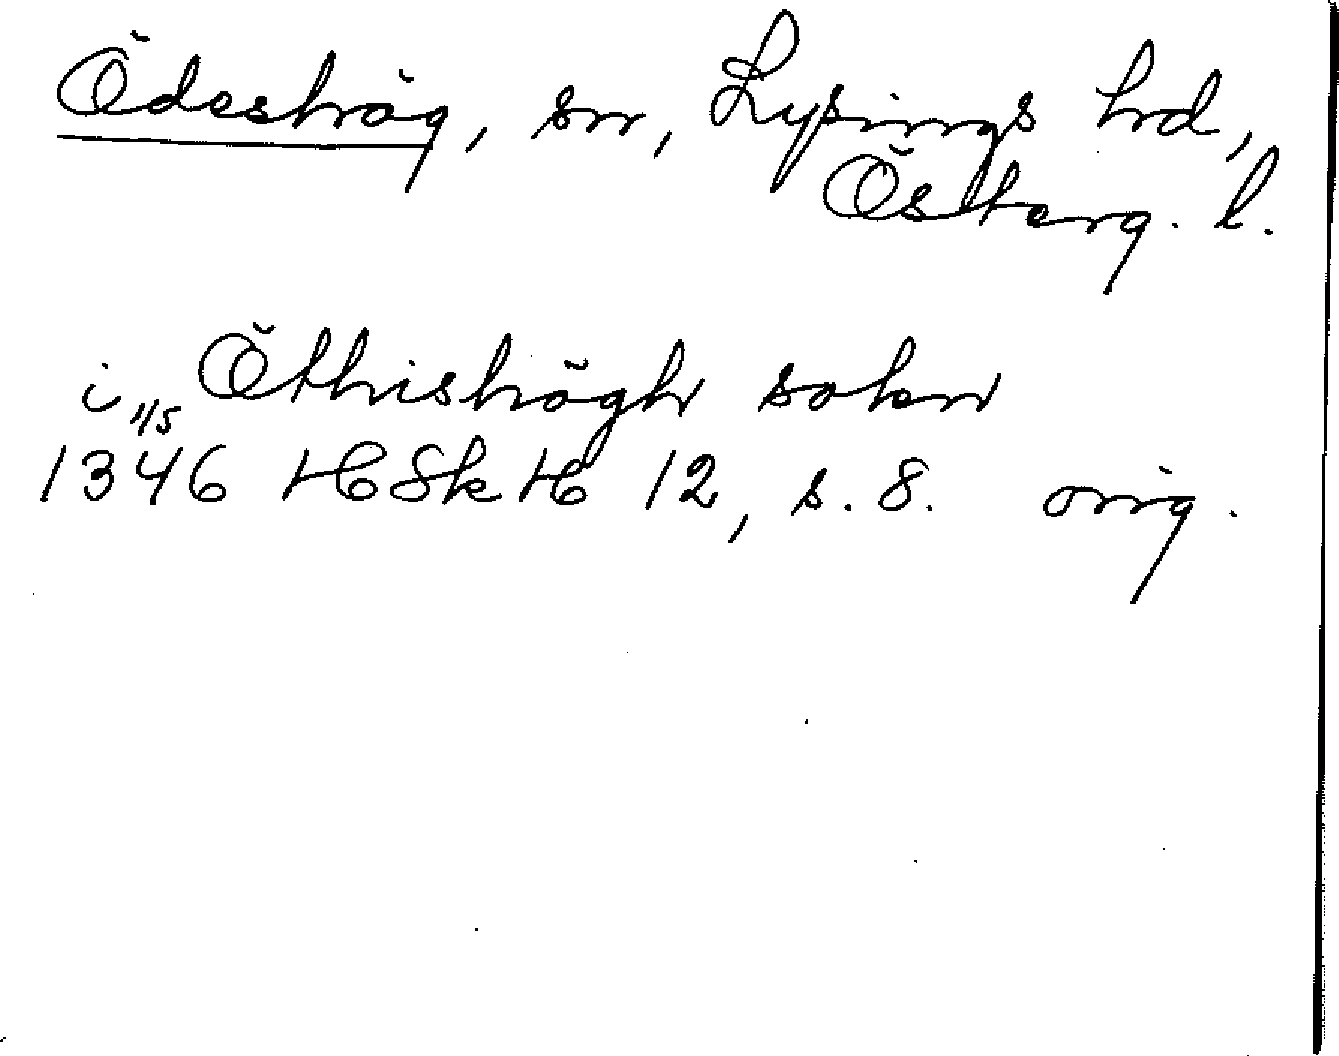 Ödeshög, sn, Lysings hd,
Österg. l.
i Öthishögh sokn
1/5
1346 HSkH 12, s. 8. orig.